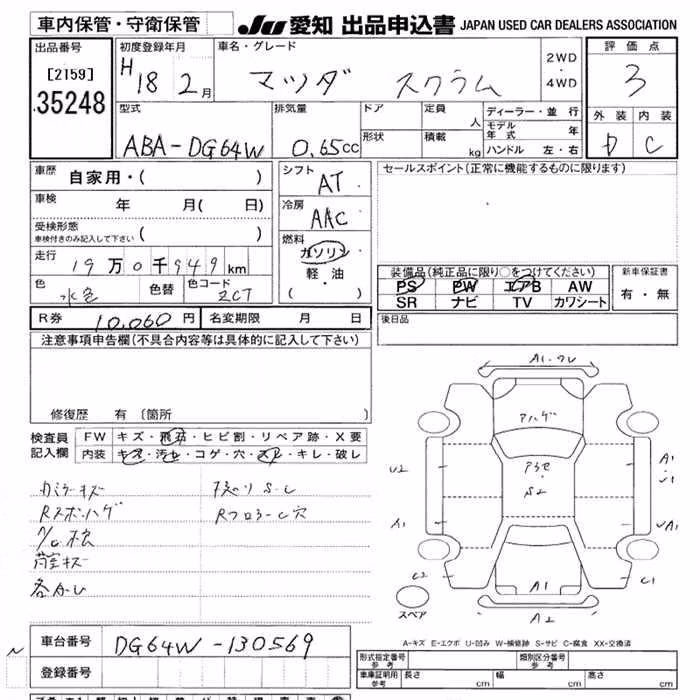 車内保管・守衛保管 JU 愛知 出品申込書 JAPAN USED CAR DEALERS ASSOCIATION
出品番号 初度登録年月 車名・グレード 評価点
[2159] H 18 2月 マツダ スクラム 2WD・4WD 3
35248
型式 排気量 ドア 定員 人 ディーラー・並行 外装 内装
ABA-DG64W 0.65cc 形状 積載 kg モデル年式 年 D C
ハンドル 左・右
車歴 自家用・( ) シフト AT セールスポイント(正常に機能するものに限ります)
車検 年 月( 日) 冷房 AAC
受検形態 車検付きのみ記入して下さい ( )
燃料 ガソリン 軽・油 ( ・ )
走行 19万0千949km 装備品(純正品に限り○をつけてください) 新車保証書
色 水色 色替 色コード ZCT PS PW エアB AW 有・無
SR ナビ TV カワシート
R券 10,060円 名変期限 月 日 後日品
注意事項申告欄(不具合内容等は具体的に記入して下さい)
修復歴 有 〔箇所 〕
検査員記入欄 FW キズ・飛石・ヒビ割・リペア跡・X要
内装 キズ・汚れ・コゲ・穴・スレ・キレ・破レ
A1・ワレ
アハゲ
U2 S2 A1
A1 A1
C2 A1 C1
スペア A2
A-キズ E-エクボ U-凹み W-補修跡 S-サビ C-腐食 XX-交換済
車台番号 DG64W-130569 形式指定番号 参考 類別区分番号 参考
登録番号 車庫証明用 参考 長さ cm 幅 cm 高さ cm